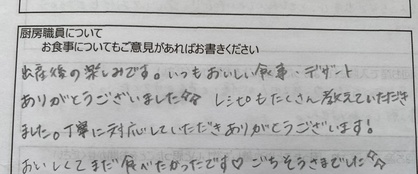 厨房職員について
お食事についてもご意見があればお書きください
出産後の楽しみです。いつもおいしい食事・デザート
ありがとうございました☆☆ レシピもたくさん教えていただき
ました。丁寧に対応していただきありがとうございます!
おいしくてまだ食べたかったです♡ ごちそうさまでした☆☆